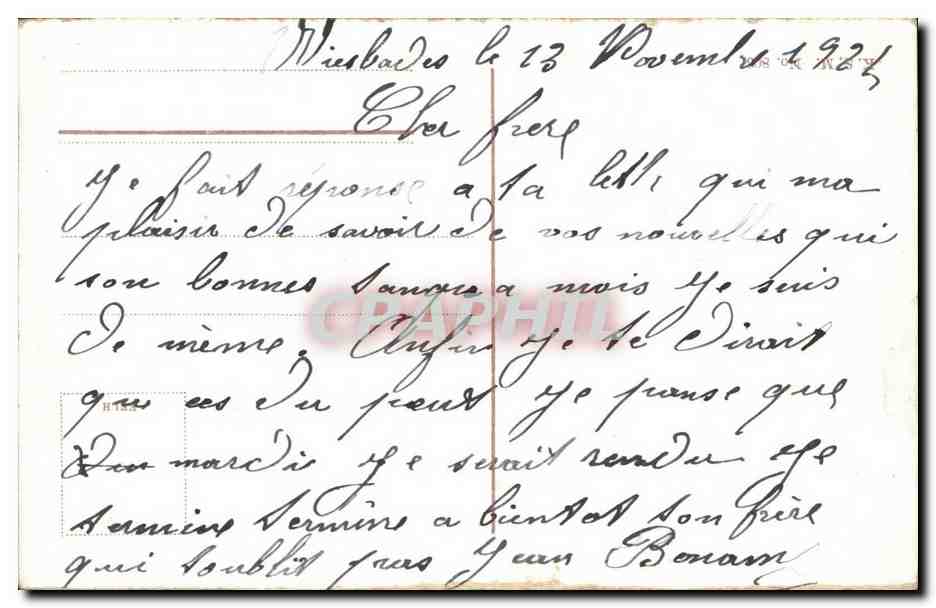 Wiesbades le 13 Novembre 1921
Cher frere
Je fait réponse a ta lettre qui ma
plaisir de savoir de vos nouvelles qui
son bonnes tanqua mois Je suis
de mème. Anfin Je te dirait
que ces du peut Je panse que
mardie Je serait rendu Je
termine termine a bientot ton frère
qui toublit pas Jean Bonam
CPAPHIL